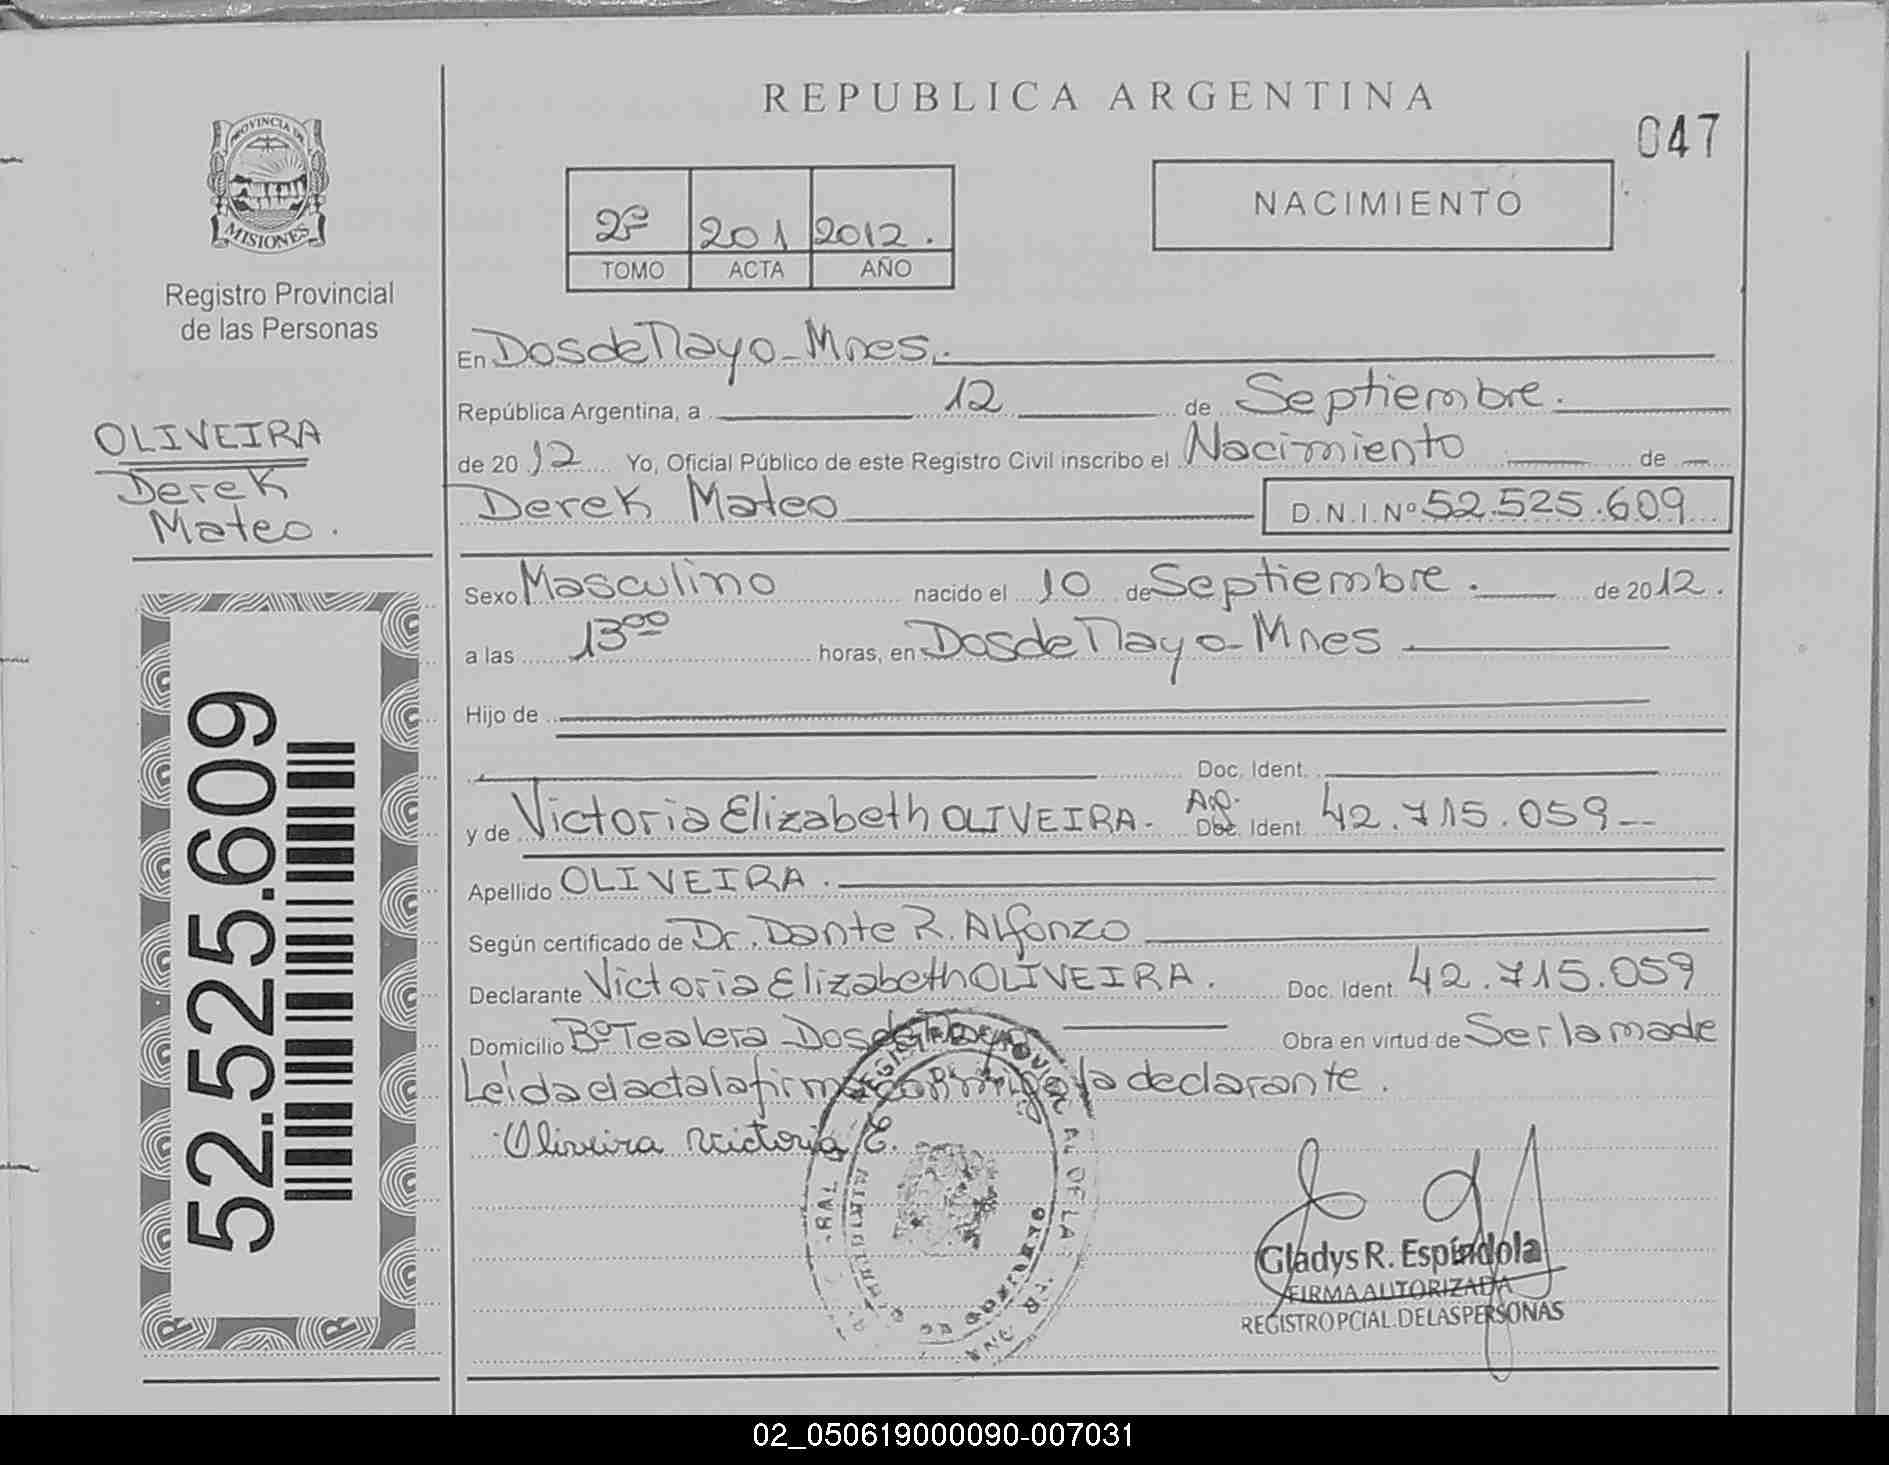 REPUBLICA ARGENTINA
047
PROVINCIA DE
MISIONES
Registro Provincial
de las Personas
2º 201 2012.
TOMO ACTA AÑO
NACIMIENTO
OLIVEIRA
Derek
Mateo.
52.525.609
En Dos de Mayo - Mnes.
República Argentina, a 12 de Septiembre.
de 20 12 Yo, Oficial Público de este Registro Civil inscribo el Nacimiento de
Derek Mateo D.N.I.Nº 52.525.609
Sexo Masculino nacido el 10 de Septiembre. de 2012.
a las 13⁰⁰ horas, en Dos de Mayo - Mnes
Hijo de
Doc. Ident.
y de Victoria Elizabeth OLIVEIRA. Doc. Ident. 42.715.059
Apellido OLIVEIRA.
Según certificado de Dr. Dante R. Alfonzo
Declarante Victoria Elizabeth OLIVEIRA. Doc. Ident. 42.715.059
Domicilio Bº Tealera Dos de Mayo Obra en virtud de Ser la madre
Leída el acta la firma conmigo la declarante.
Oliveira Victoria E.
Gladys R. Espíndola
FIRMA AUTORIZADA
REGISTRO PCIAL. DE LAS PERSONAS
02_050619000090-007031